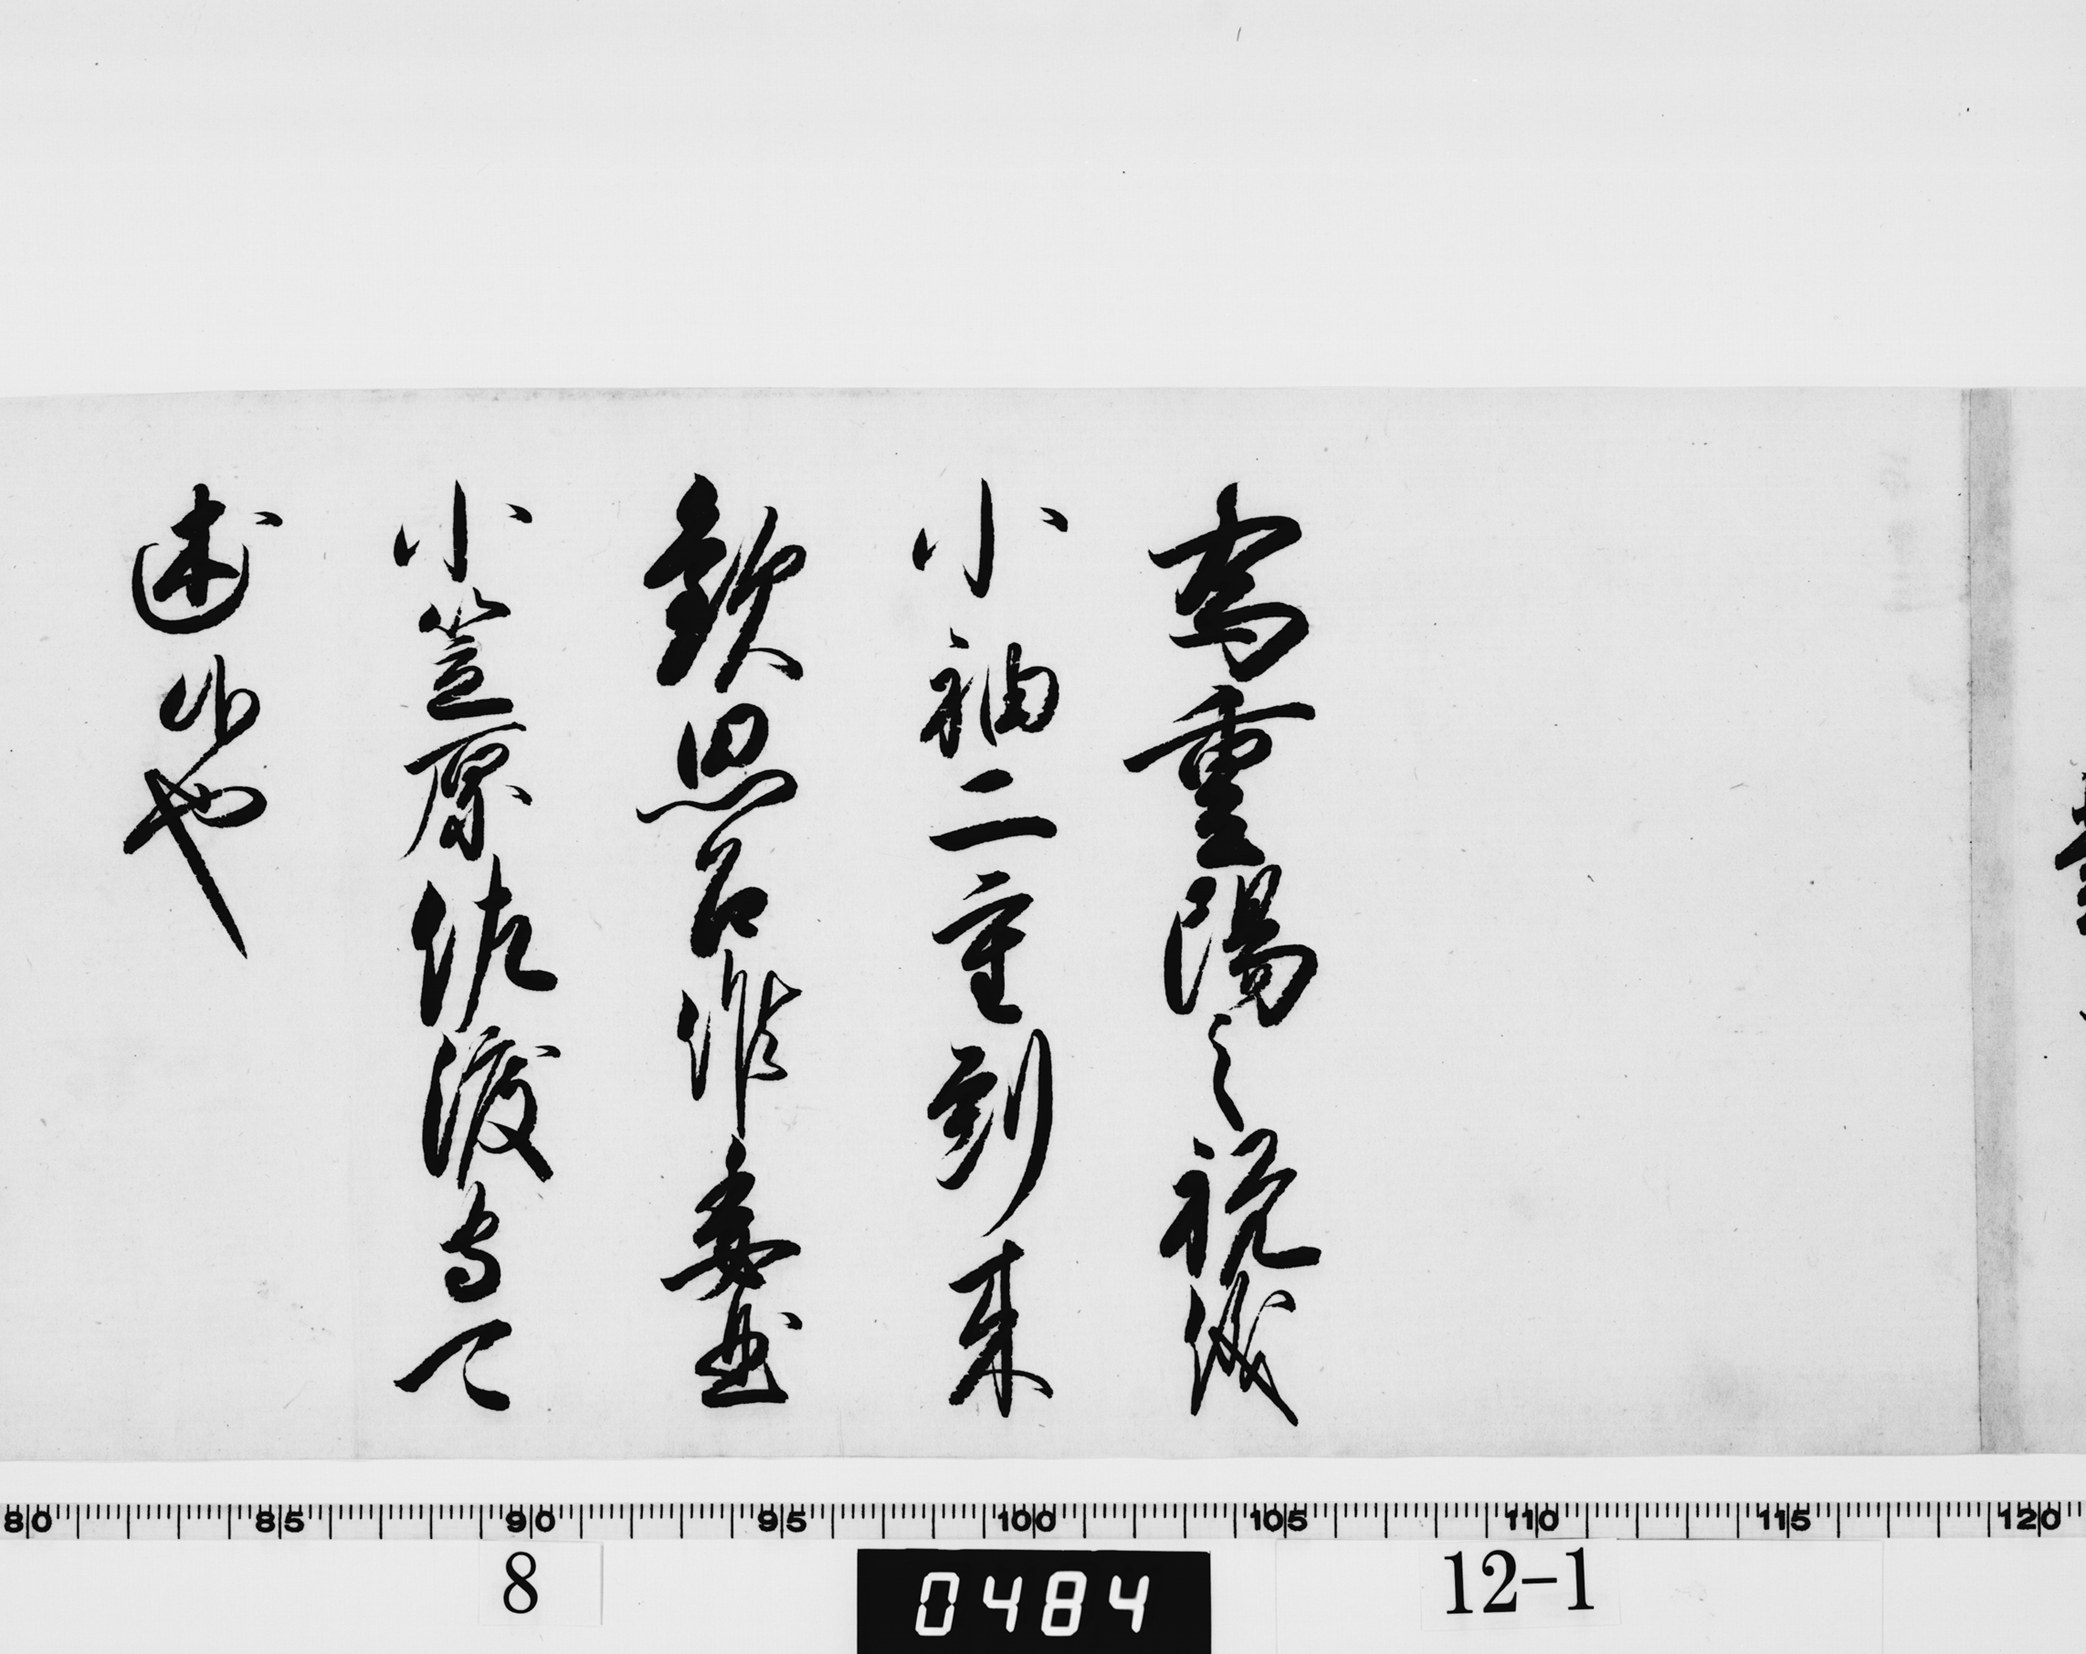 為重陽之祝儀
小袖二重到来
歓思召候委曲
小笠原佐渡守可
述候也
80 85 90 95 100 105 110 115 120
8
0484
12-1